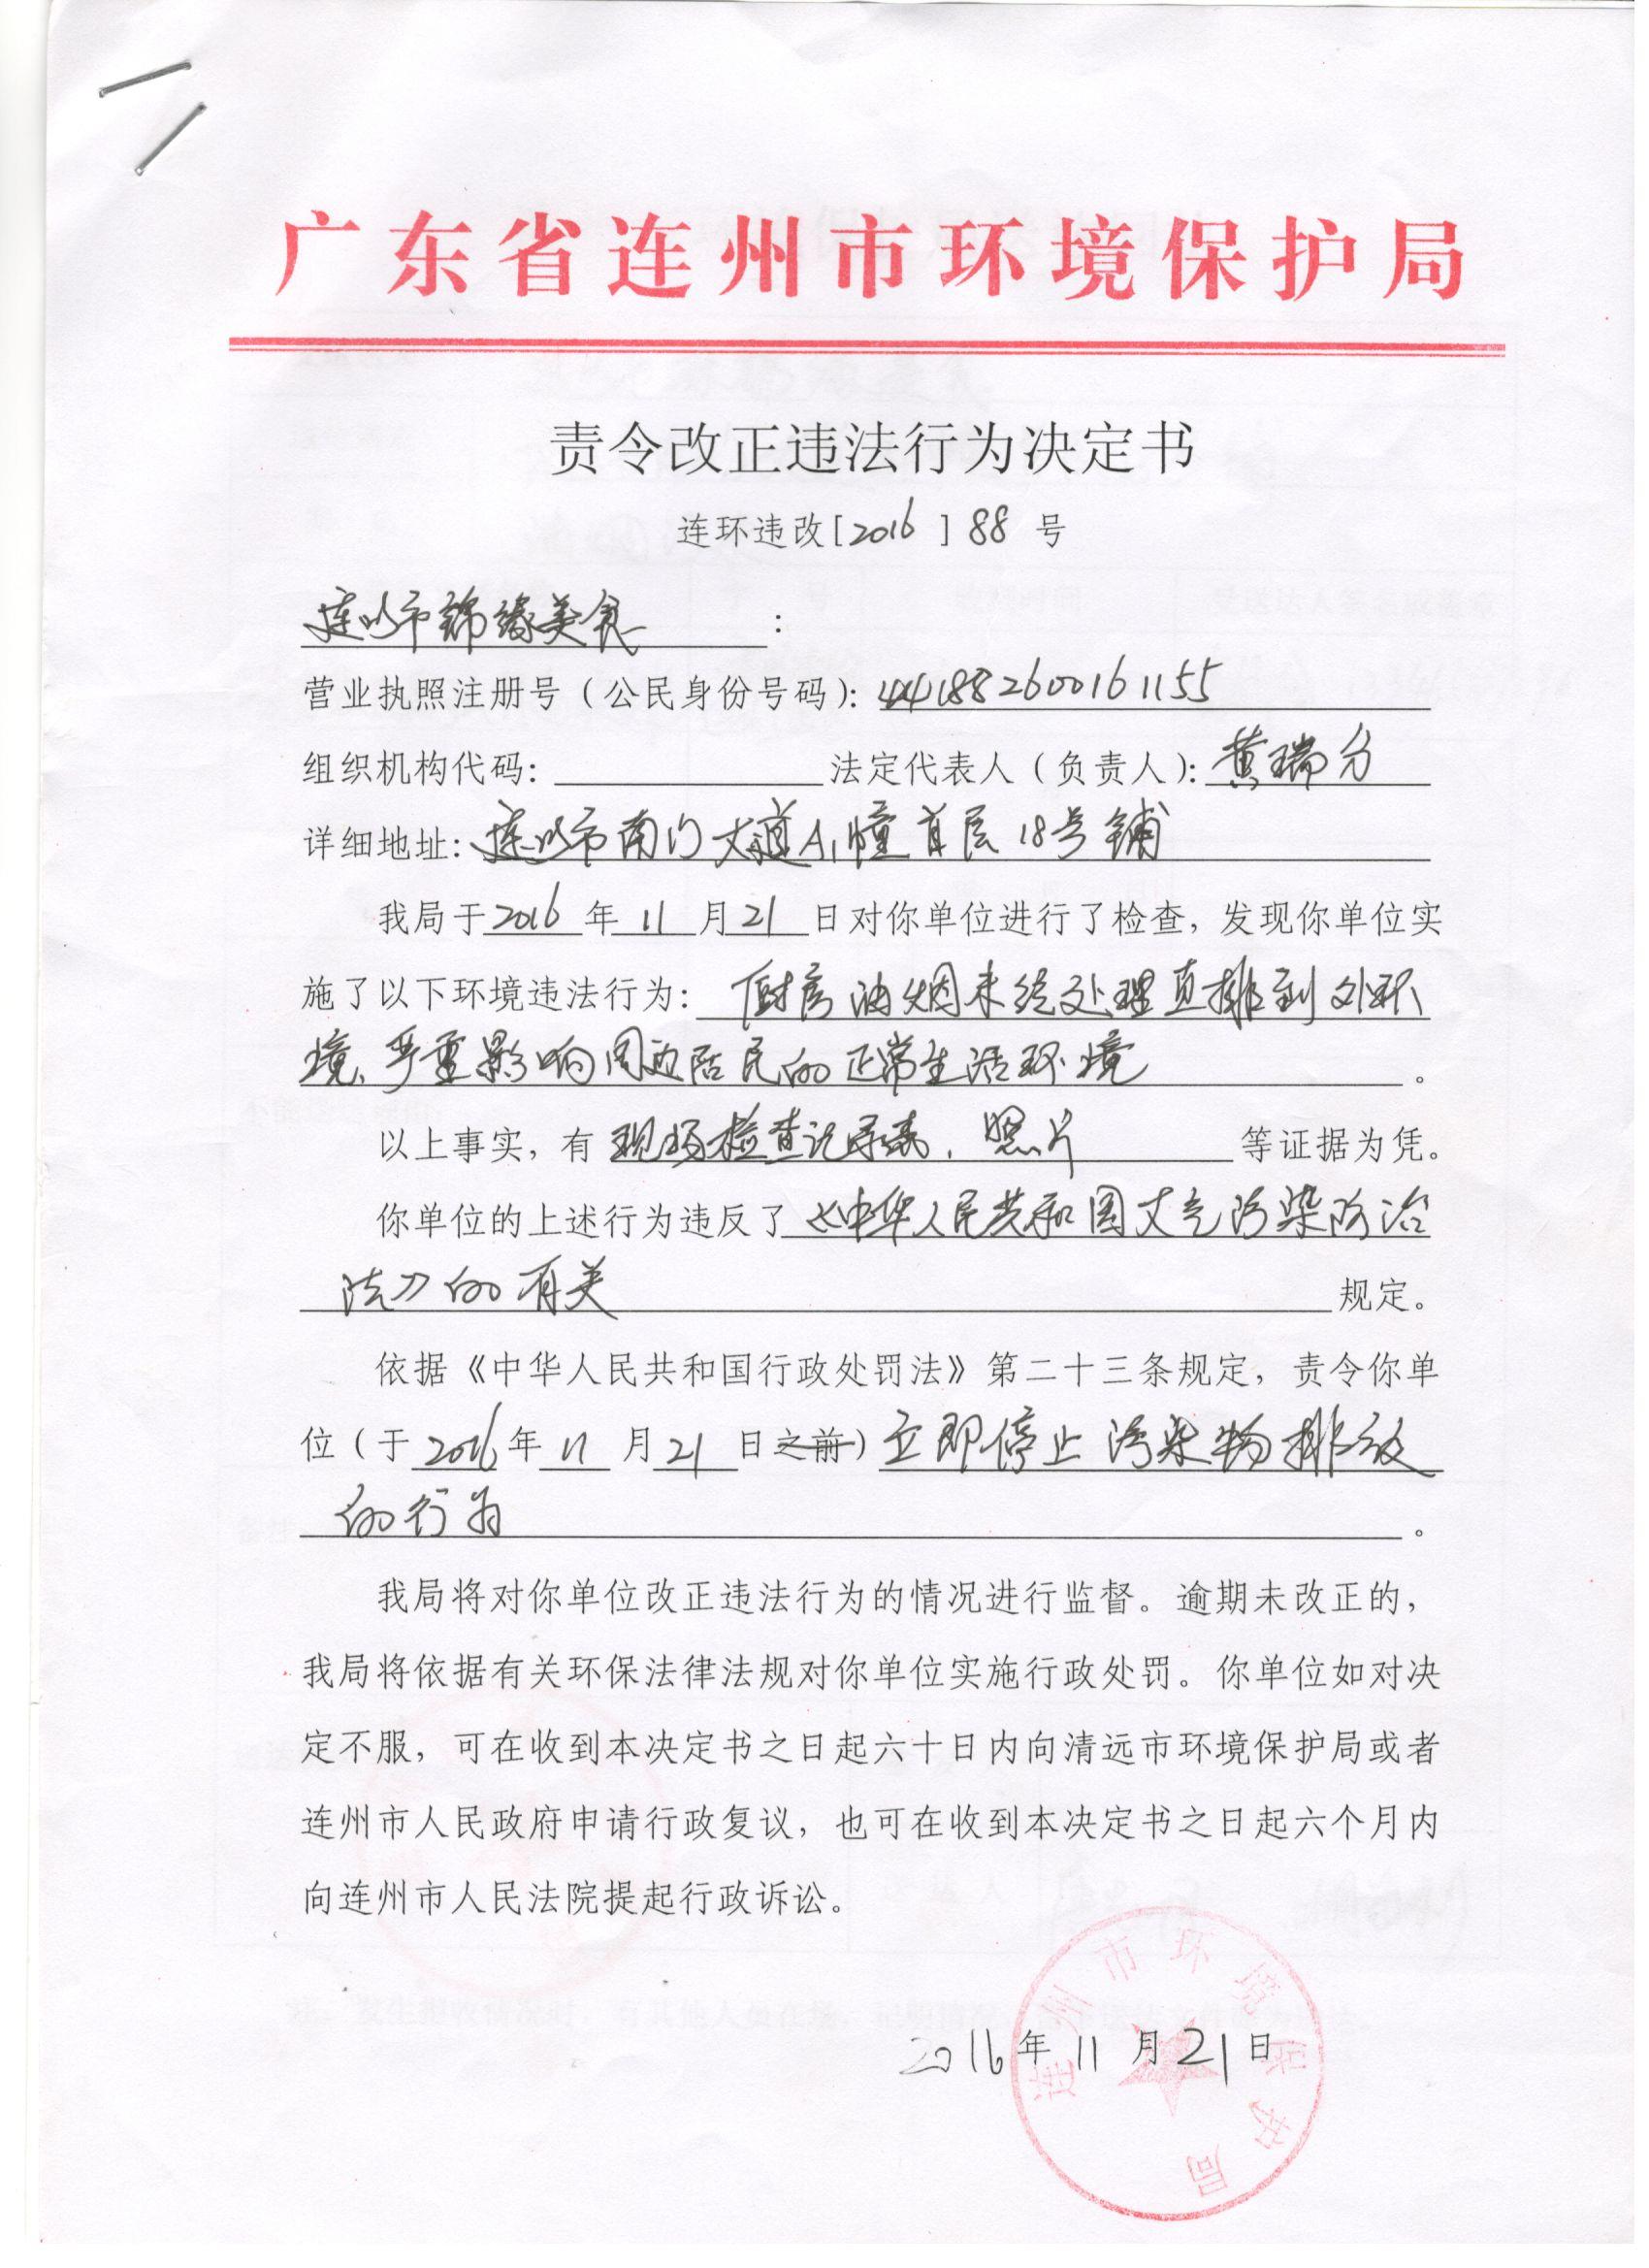 广东省连州市环境保护局
责令改正违法行为决定书
连环违改[2016]88号
连州市锦缘美食：
营业执照注册号（公民身份号码）：441882600161155
组织机构代码：法定代表人（负责人）：黄瑞分
详细地址：连州市南门大道A1幢首层18号铺
我局于2016年11月21日对你单位进行了检查，发现你单位实
施了以下环境违法行为：厨房油烟未经处理直排到外环
境、严重影响周边居民的正常生活环境。
以上事实，有现场检查记录表、照片等证据为凭。
你单位的上述行为违反了《中华人民共和国大气污染防治
法》的有关规定。
依据《中华人民共和国行政处罚法》第二十三条规定，责令你单
位（于2016年11月21日之前）立即停止污染物排放
的行为。
我局将对你单位改正违法行为的情况进行监督。逾期未改正的，
我局将依据有关环保法律法规对你单位实施行政处罚。你单位如对决
定不服，可在收到本决定书之日起六十日内向清远市环境保护局或者
连州市人民政府申请行政复议，也可在收到本决定书之日起六个月内
向连州市人民法院提起行政诉讼。
2016年11月21日
连州市环境保护局